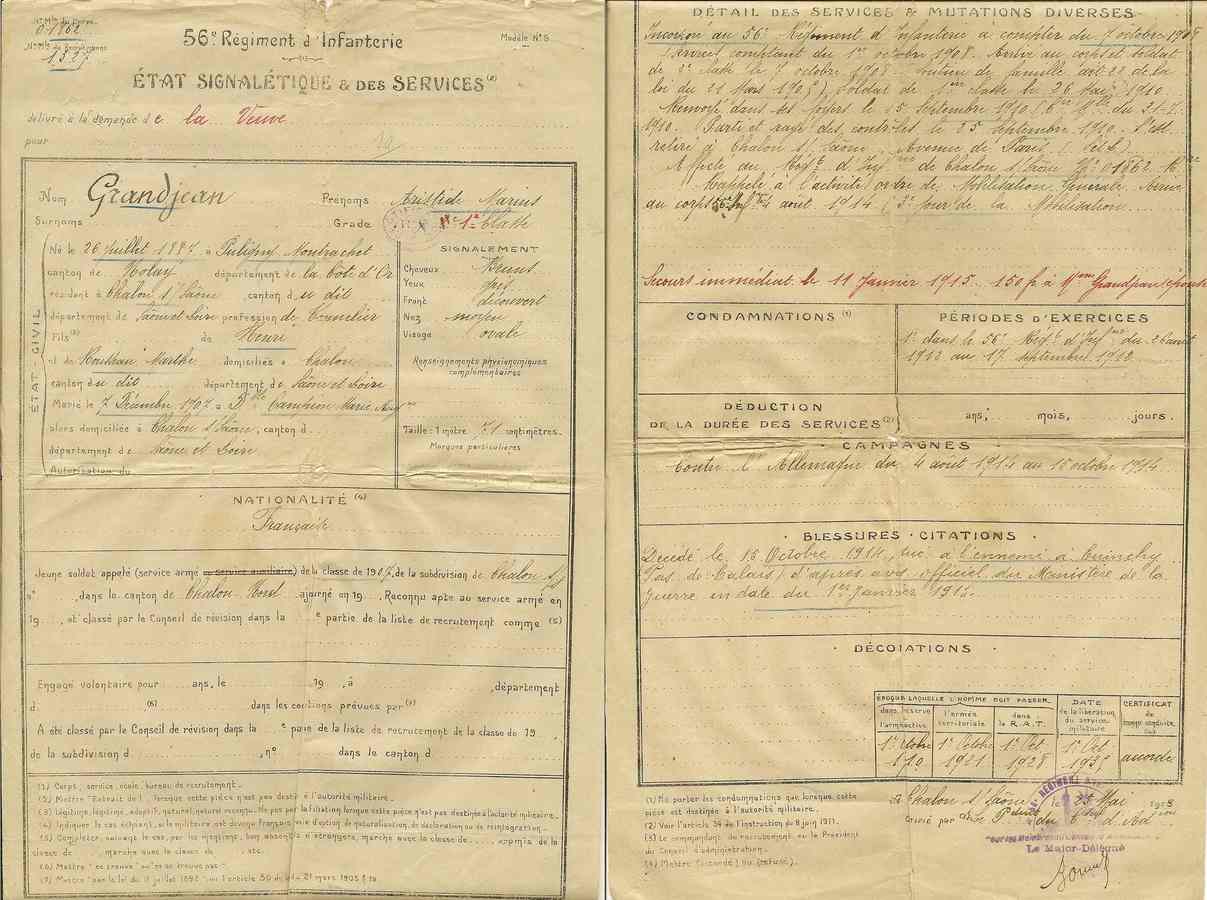 Nº Mle du Corps
01862
Nº Mle du Recrutement
1527
56e Régiment d'Infanterie
Modèle Nº 5
ÉTAT SIGNALÉTIQUE & DES SERVICES (2)
délivré à la demande de la Veuve
pour
Nom Grandjean Prénoms Aristide Marius
Surnoms Grade 1e Classe
ÉTAT-CIVIL
Né le 26 Juillet 1887 à Puligny Montrachet
canton de Nolay département de la Côte d'Or
résidant à Chalon s/Saône canton du dit
département de Saône et Loire profession de Tonnelier
Fils (3) de Henri
et de Marthe domiciliés à Chalon
canton du dit département de Saône et Loire
Marié le 7 Décembre 1907 à Dlle Marie
alors domiciliée à Chalon s/Saône, canton d
département de Saône et Loire
Autorisation du
SIGNALEMENT
Cheveux Bruns
Yeux gris
Front découvert
Nez moyen
Visage ovale
Renseignements physionomiques
complémentaires
Taille: 1 mètre 71 centimètres.
Marques particulières
NATIONALITÉ (4)
Française
Jeune soldat appelé (service armé ou service auxiliaire) de la classe de 1907, de la subdivision de Chalon s/s
nº , dans le canton de Chalon Nord ajourné en 19 . Reconnu apte au service armé en
19 , et classé par le Conseil de révision dans la e partie de la liste de recrutement comme (5)
Engagé volontaire pour ans, le 19 , à , département
d (6) dans les conditions prévues par (7)
A été classé par le Conseil de révision dans la e partie de la liste de recrutement de la classe de 19
de la subdivision d , nº dans le canton d
(1) Corps, service, école, bureau de recrutement.
(2) Mettre "Extrait de l', lorsque cette pièce n'est pas destinée à l'autorité militaire.
(3) Légitime, légitimé, adoptif, naturel, naturel reconnu. Ne pas la filiation lorsque cette pièce n'est pas destinée à l'autorité militaire.
(4) Indiquer le cas échéant, si le militaire est devenu Français voie d'option de naturalisation, de déclaration ou de réintégration.
(5) Compléter, suivant le cas, par les mentions, bon absent, à étranger, marche avec la classe de omis de la
classe de , marche avec la classe de , etc.
(6) Mettre "se trouve" ou "ne se trouve pas"
(7) Mettre "par la loi du 11 juillet 1892" ou l'article 50 de la loi 21 mars 1905
DÉTAIL DES SERVICES & MUTATIONS DIVERSES
Incorporé au 56e Régiment d'Infanterie à compter du 7 octobre 1908
(Service comptant du 1er octobre 1908. Arrivé au corps et soldat
de 2e classe le 7 octobre 1908. Soutien de famille art. 22 de la
loi du 21 Mars 1905), Soldat de 1ère classe le 26 Mai 1910.
Renvoyé dans ses foyers le 25 Septembre 1910
1910. Parti et rayé des contrôles le 25 septembre 1910. S'est
retiré à Chalon s/Saône, Avenue de Paris
Affecté au Régt d'Infie de Chalon s/Saône Nº 01862
Rappelé à l'activité ordre de Mobilisation Générale. Arrivé
au corps 4 août 1914 (3e jour de la Mobilisation.
Secours immédiat le 11 Janvier 1915 150 f à Mme Grandjean épouse
CONDAMNATIONS (1)
PÉRIODES D'EXERCICES
1e dans le 56e Régt d'Infie du 26 août
1912 au 17 septembre 1912
DÉDUCTION
DE LA DURÉE DES SERVICES (2) ans; mois, jours.
CAMPAGNES
Contre l'Allemagne du 4 août 1914 au 15 octobre 1914
BLESSURES - CITATIONS
Décédé le 15 Octobre 1914, tué à l'ennemi à Cuinchy
(Pas-de-Calais) d'après avis officiel du Ministère de la
guerre en date du 1er Janvier 1915.
DÉCORATIONS
ÉPOQUE LAQUELLE L'HOMME DOIT PASSER
dans la réserve de l'armée active
l'armée territoriale
dans la R.A.T.
DATE de la libération du service militaire
CERTIFICAT de bonne conduite
1er Octobre 1910
1er Octobre 1921
1er Oct 1928
1er Oct
accordé
(1) Ne porter les condamnations que lorsque cette
pièce est destinée à l'autorité militaire.
(2) Voir l'article 34 de l'instruction du 8 juin 1911.
(3) Le commandant du recrutement ou le Président
du Conseil d'administration.
(4) Mettre (accordé) ou (refusé).
A Chalon s/Saône le 25 Mai 1915
Le Major-Délégué